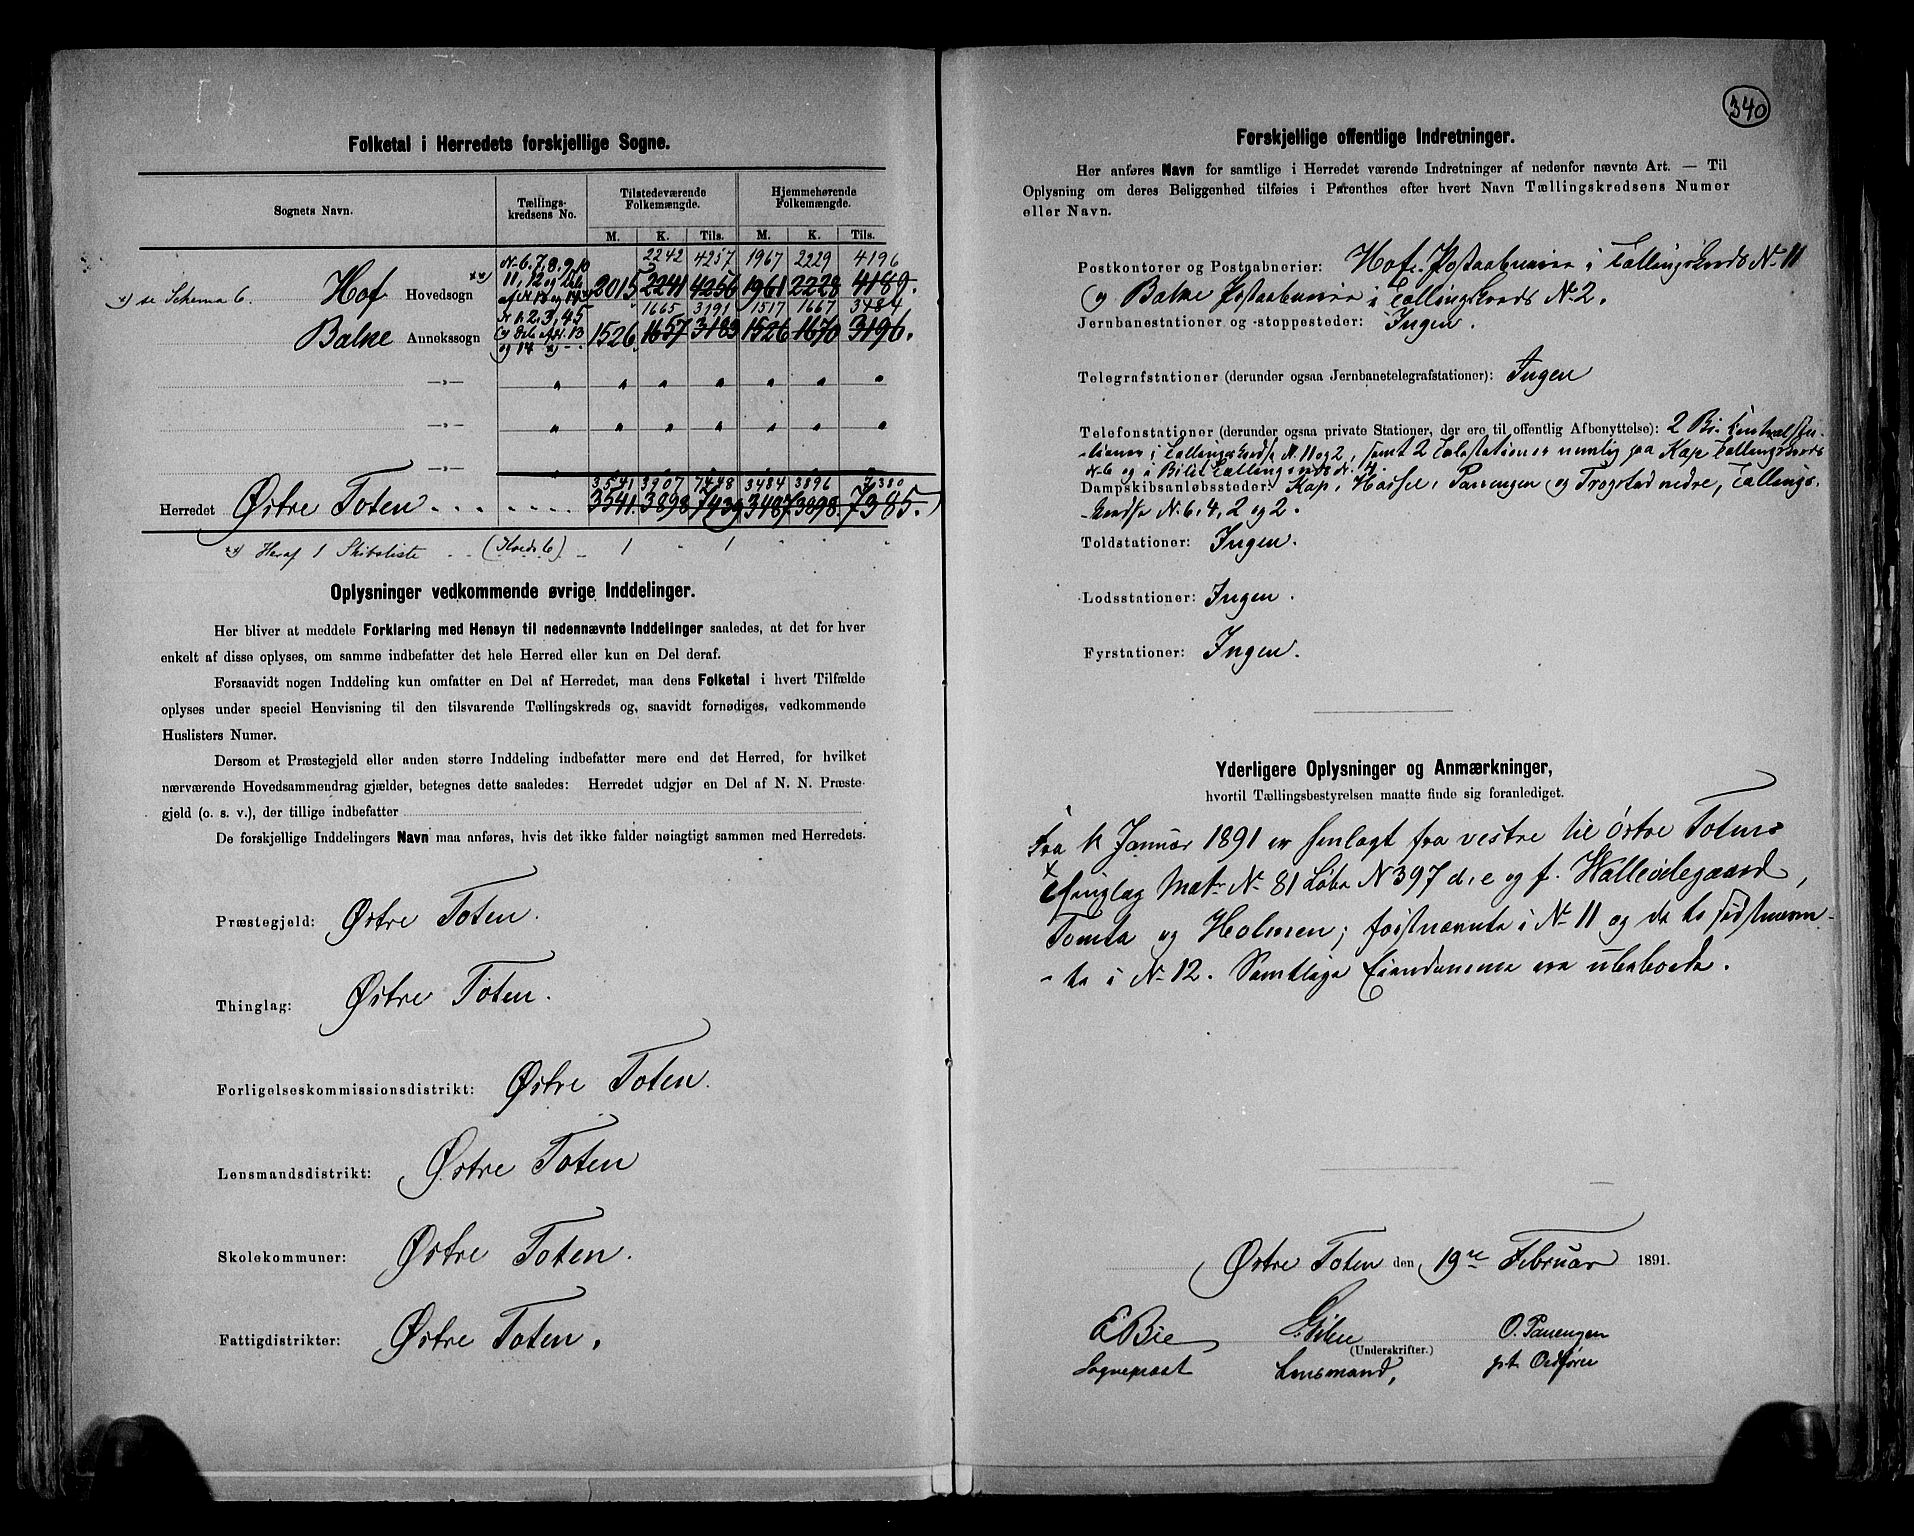 Folketal i Herredets forskjellige Sogne.
Sognets Navn. Tællings-kredsens No. Tilstedeværende Folkemængde. Hjemmehørende Folkemængde.
M. K. Tils. M. K. Tils.
2242 4257 1967 2229 4196
se Schema 6. Hof Hovedsogn N. 6, 7, 8, 9, 10 11, 12 og Del af N. 13 og 14 2015 2241 4256 1961 2228 4189.
1665 3191 1517 1667 3484
Balke Annekssogn N. 1, 2, 3, 4, 5 og Del af N. 13 og 14 1526 1657 3183 1526 1670 3196.
3541 3907 7448 3484 3896 7380
Herredet Østre Toten 3541 3898 7439 3487 3898 7385.
Heraf 1 Skibsliste (Kreds 6) 1 " 1 " " "
Oplysninger vedkommende øvrige Inddelinger.
Her bliver at meddele Forklaring med Hensyn til nedennævnte Inddelinger saaledes, at det for hver
enkelt af disse oplyses, om samme indbefatter det hele Herred eller kun en Del deraf.
Forsaavidt nogen Inddeling kun omfatter en Del af Herredet, maa dens Folketal i hvert Tilfælde
oplyses under speciel Henvisning til den tilsvarende Tællingskreds og, saavidt fornødiges, vedkommende
Huslisters Numer.
Dersom et Præstegjeld eller anden større Inddeling indbefatter mere end det Herred, for hvilket
nærværende Hovedsammendrag gjælder, betegnes dette saaledes: Herredet udgjør en Del af N. N. Præste-
gjeld (o. s. v.), der tillige indbefatter
De forskjellige Inddelingers Navn maa anføres, hvis det ikke falder nøiagtigt sammen med Herredets.
Præstegjeld: Østre Toten.
Thinglag: Østre Toten.
Forligelseskommissionsdistrikt: Østre Toten.
Lensmandsdistrikt: Østre Toten
Skolekommuner: Østre Toten.
Fattigdistrikter: Østre Toten.
340
Forskjellige offentlige Indretninger.
Her anføres Navn for samtlige i Herredet værende Indretninger af nedenfor nævnte Art. — Til
Oplysning om deres Beliggenhed tilføies i Parenthes efter hvert Navn Tællingskredsens Numer
eller Navn.
Postkontorer og Postaabnerier: Hofs Postaabneri i Tællingskreds N. 11
og Balke Postaabneri i Tællingskreds N. 2.
Jernbanestationer og -stoppesteder: Ingen.
Telegrafstationer (derunder ogsaa Jernbanetelegrafstationer): Ingen
Telefonstationer (derunder ogsaa private Stationer, der ere til offentlig Afbenyttelse): 2 Bi-Centralsta-
tioner i Tællingskredse N. 11 og 2, samt 2 Talestationer nemlig paa Kap Tællingskreds
N. 6 og i Bilit Tællingskreds N. 4.
Dampskibsanløbssteder: Kap, Hasle, Panengen og Trogstad nedre, Tællings-
kredse N. 6, 4, 2 og 2.
Toldstationer: Ingen.
Lodsstationer: Ingen.
Fyrstationer: Ingen.
Yderligere Oplysninger og Anmærkninger,
hvortil Tællingsbestyrelsen maatte finde sig foranlediget.
Fra 1/1 Januar 1891 er henlagt fra vestre til østre Totens
Thinglag Matr. N. 81 Løbe N 397 d, e og f. Walleødegaard,
Tomta og Holmen; førstnævnte i N. 11 og de to sidstnævn-
te i N. 12. Samtlige Eiendomme ere ubeboede.
Østre Toten den 19de Februar 1891.
E Bie O. Panengen
(Underskrifter.)
Sogneprest Lensmand, p.t. Ordfører